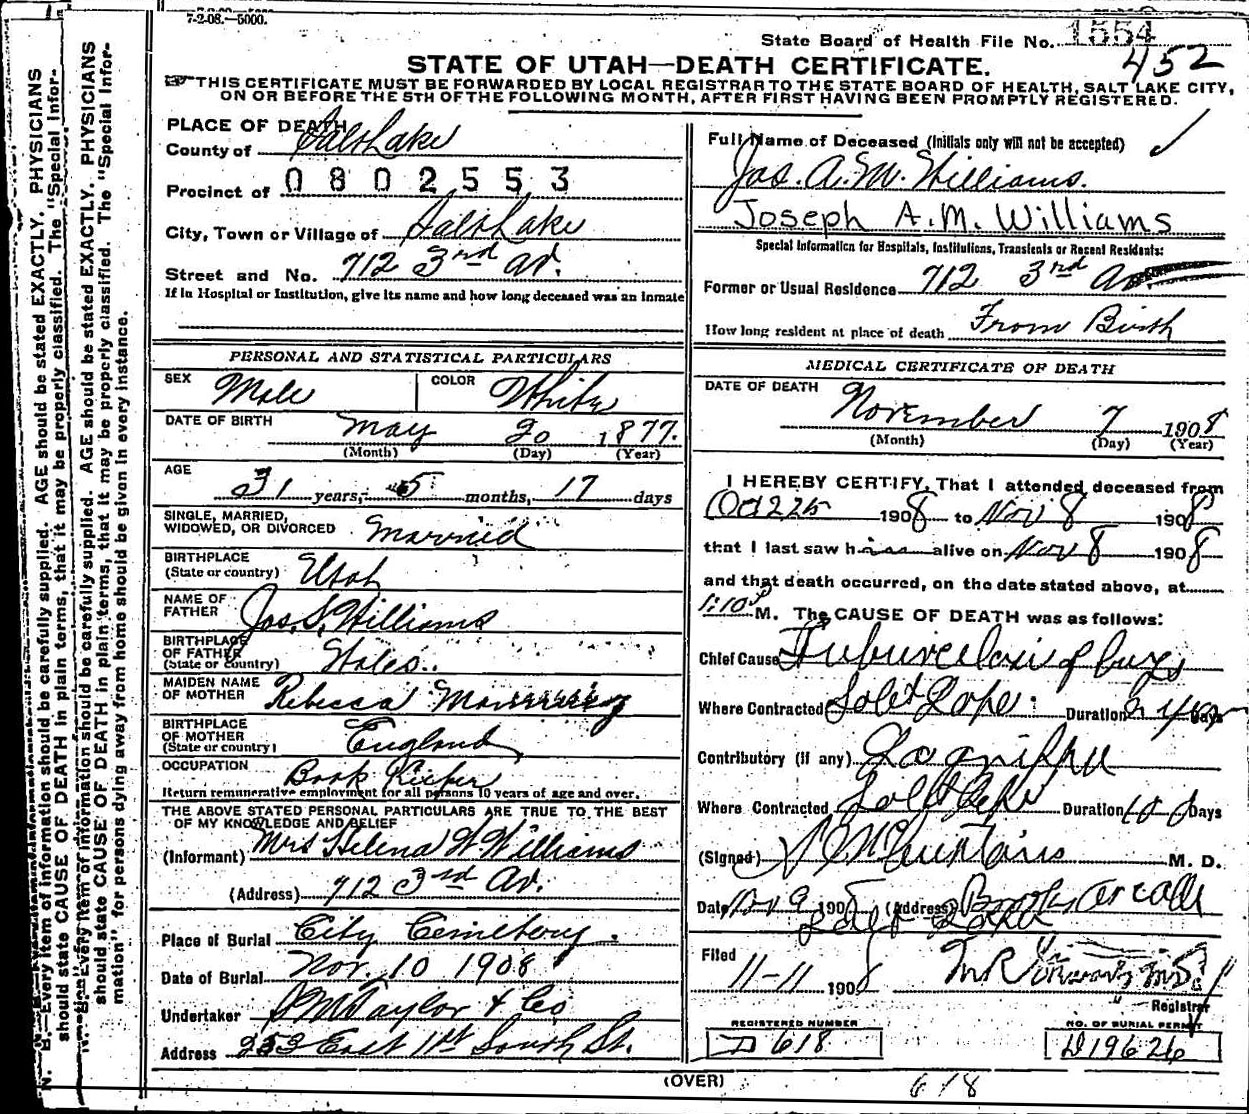 7-2-08.—5000.
State Board of Health File No. 1554
452
STATE OF UTAH—DEATH CERTIFICATE.
THIS CERTIFICATE MUST BE FORWARDED BY LOCAL REGISTRAR TO THE STATE BOARD OF HEALTH, SALT LAKE CITY,
ON OR BEFORE THE 5TH OF THE FOLLOWING MONTH, AFTER FIRST HAVING BEEN PROMPTLY REGISTERED.
N. B.—Every item of information should be carefully supplied. AGE should be stated EXACTLY. PHYSICIANS
should state CAUSE OF DEATH in plain terms, that it may be properly classified. The "Special Infor-
N. B.—Every item of information should be carefully supplied. AGE should be stated EXACTLY. PHYSICIANS
should state CAUSE OF DEATH in plain terms, that it may be properly classified. The "Special Infor-
mation" for persons dying away from home should be given in every instance.
PLACE OF DEATH
County of Salt Lake
Precinct of 0802553
City, Town or Village of Salt Lake
Street and No. 712 3rd Av.
If in Hospital or Institution, give its name and how long deceased was an Inmate
PERSONAL AND STATISTICAL PARTICULARS
SEX Male COLOR White
DATE OF BIRTH May 20 1877.
(Month) (Day) (Year)
AGE
31 years, 5 months, 17 days
SINGLE, MARRIED,
WIDOWED, OR DIVORCED Married
BIRTHPLACE
(State or country) Utah
NAME OF
FATHER Jos. S. Williams
BIRTHPLACE
OF FATHER
(State or country) Wales.
MAIDEN NAME
OF MOTHER Rebecca
BIRTHPLACE
OF MOTHER
(State or country) England
OCCUPATION Book Keeper
Return remunerative employment for all persons 10 years of age and over.
THE ABOVE STATED PERSONAL PARTICULARS ARE TRUE TO THE BEST
OF MY KNOWLEDGE AND BELIEF
(Informant) Mrs Helena W Williams
(Address) 712 3rd Av.
Place of Burial City Cemetery.
Date of Burial Nov. 10 1908
Undertaker Taylor & Co
Address 253 East 1st South St.
Full Name of Deceased (Initials only will not be accepted)
Jos. A. M. Williams.
Joseph A.M. Williams
Special Information for Hospitals, Institutions, Transients or Recent Residents:
Former or Usual Residence 712 3rd Av
How long resident at place of death From Birth
MEDICAL CERTIFICATE OF DEATH
DATE OF DEATH November 7 1908
(Month) (Day) (Year)
I HEREBY CERTIFY, That I attended deceased from
1908 to Nov 8 1908
that I last saw him alive on Nov 8 1908
and that death occurred, on the date stated above, at
1:10 P M. The CAUSE OF DEATH was as follows:
Chief Cause Tuberculosis of lungs
Where Contracted Salt Lake Duration 2 yrs Days
Contributory (if any) La grippe
Where Contracted Salt Lake Duration 10 Days
(Signed) M. D.
Date, Nov 9 1908 (Address) Brooks Arcade
Salt Lake
Filed
11-11 1908
Registrar
REGISTERED NUMBER
D 618
NO. OF BURIAL PERMIT
D19626
(OVER)
618